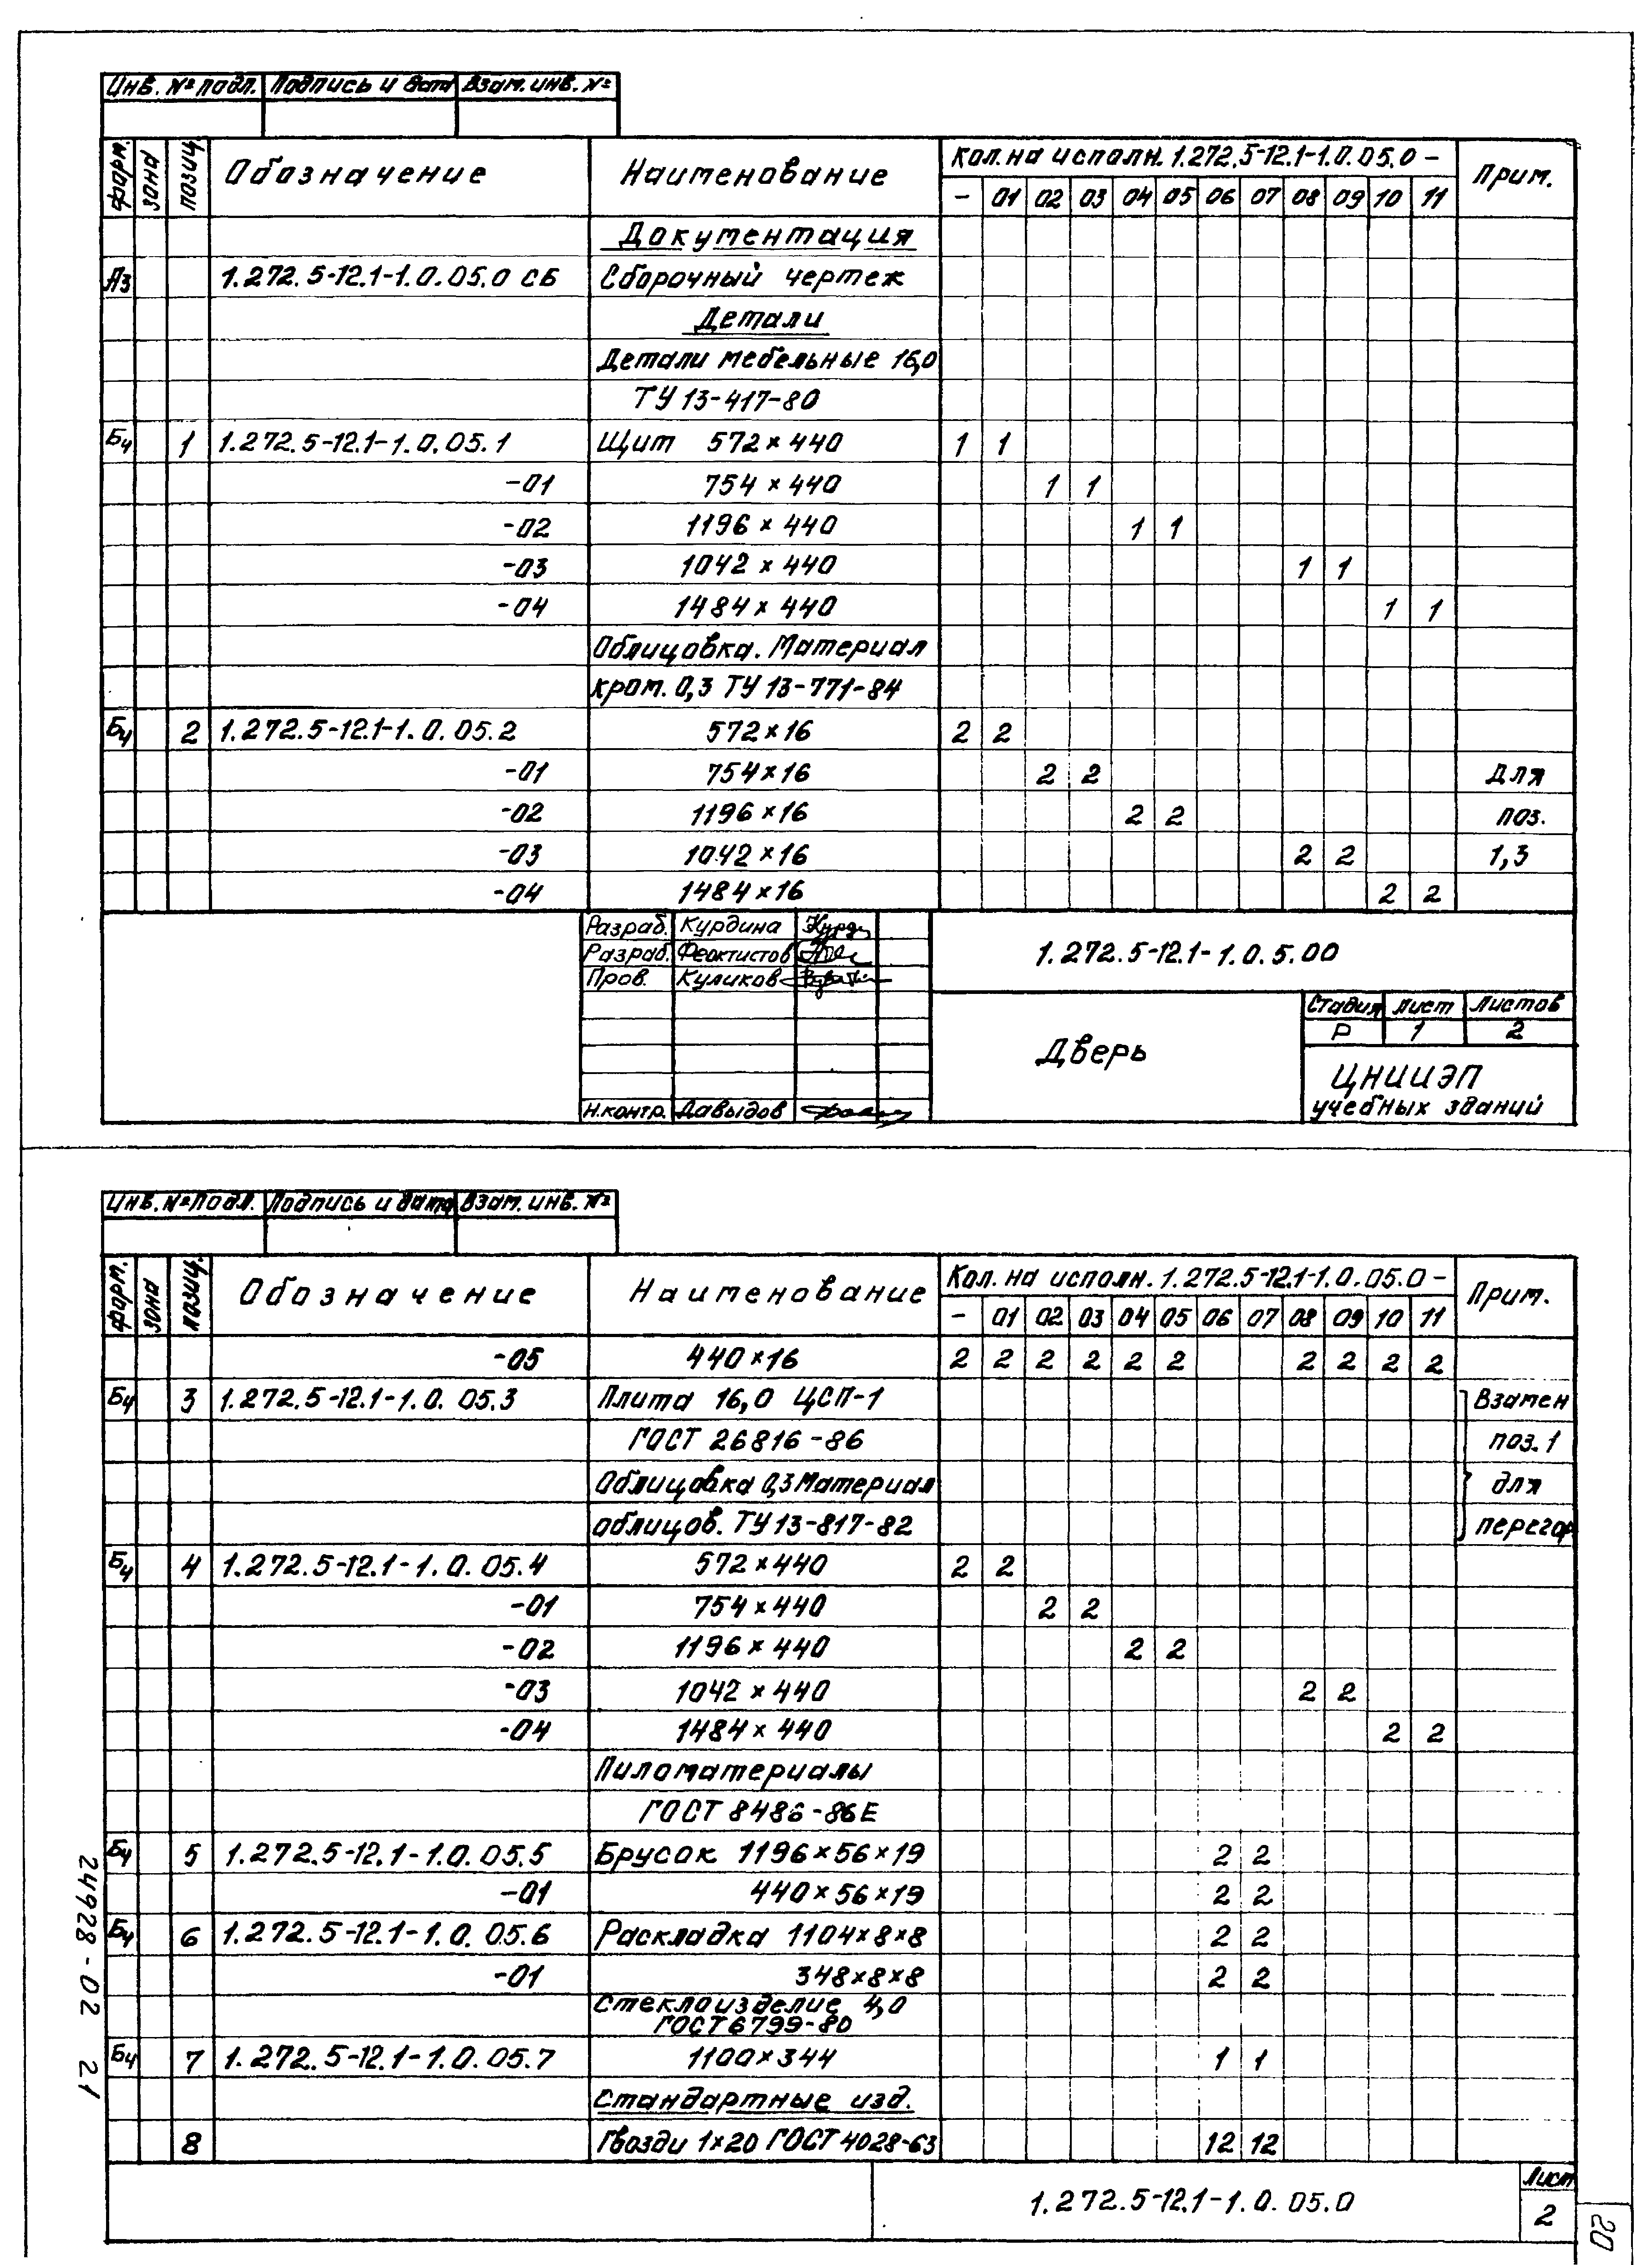 Инв. № подл. Подпись и дата Взам. инв. №
форм. зона позиц. Обозначение Наименование Кол. на исполн. 1.272.5-12.1-1.0.05.0 – Прим.
– 01 02 03 04 05 06 07 08 09 10 11
Документация
А3 1.272.5-12.1-1.0.05.0 СБ Сборочный чертеж
Детали
Детали мебельные 16,0
ТУ 13-417-80
Бч 1 1.272.5-12.1-1.0.05.1 Щит 572×440 1 1
-01 754×440 1 1
-02 1196×440 1 1
-03 1042×440 1 1
-04 1484×440 1 1
Облицовка. Материал
кром. 0,3 ТУ 13-771-84
Бч 2 1.272.5-12.1-1.0.05.2 572×16 2 2
-01 754×16 2 2 для
-02 1196×16 2 2 поз.
-03 1042×16 2 2 1,3
-04 1484×16 2 2
Разраб. Курдина
Разраб. Феоктистов
Пров. Куликов
Н.контр. Давыдов
1.272.5-12.1-1.0.5.00
Дверь
Стадия Лист Листов
Р 1 2
ЦНИИЭП
учебных зданий
Инв. № подл. Подпись и дата Взам. инв. №
форм. зона позиц. Обозначение Наименование Кол. на исполн. 1.272.5-12.1-1.0.05.0 – Прим.
– 01 02 03 04 05 06 07 08 09 10 11
-05 440×16 2 2 2 2 2 2 2 2 2 2
Бч 3 1.272.5-12.1-1.0.05.3 Плита 16,0 ЦСП-1 Взамен
ГОСТ 26816-86 поз. 1
Облицовка 0,3 Материал для
облицов. ТУ 13-817-82 перегор
Бч 4 1.272.5-12.1-1.0.05.4 572×440 2 2
-01 754×440 2 2
-02 1196×440 2 2
-03 1042×440 2 2
-04 1484×440 2 2
Пиломатериалы
ГОСТ 8486-86Е
Бч 5 1.272.5-12.1-1.0.05.5 Брусок 1196×56×19 2 2
-01 440×56×19 2 2
Бч 6 1.272.5-12.1-1.0.05.6 Раскладка 1104×8×8 2 2
-01 348×8×8 2 2
Стеклоизделие 4,0
ГОСТ 6799-80
Бч 7 1.272.5-12.1-1.0.05.7 1100×344 1 1
Стандартные изд.
8 Гвозди 1×20 ГОСТ 4028-63 12 12
1.272.5-12.1-1.0.05.0
Лист
2
24928-02 21
20